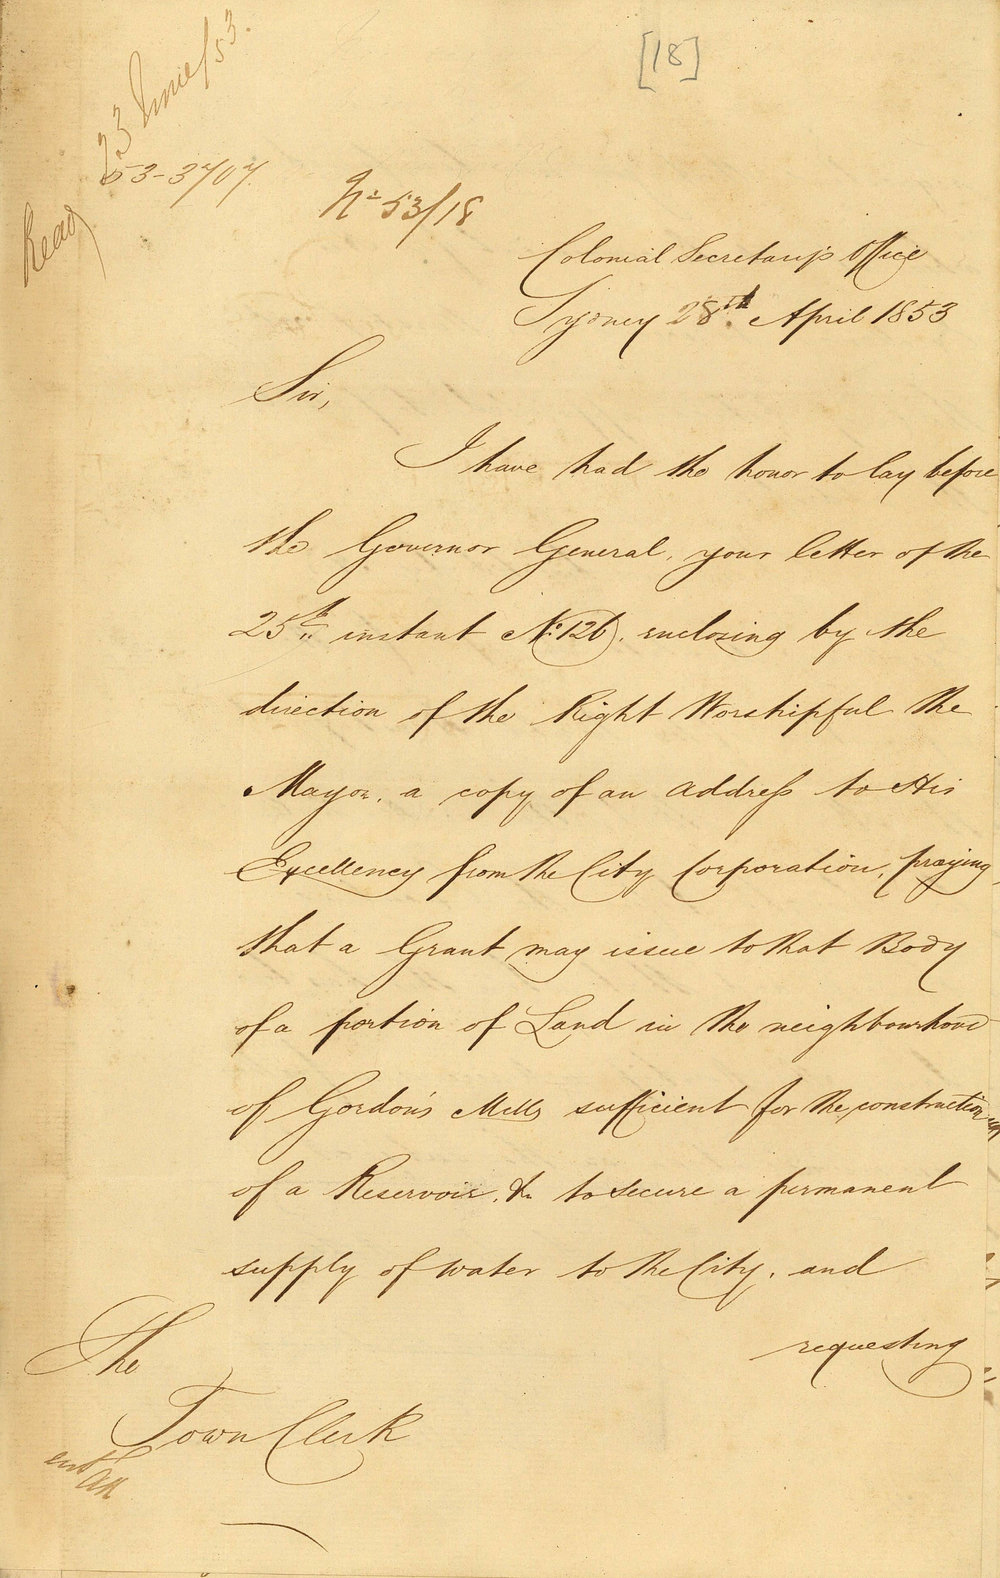 [18]
23 June/53.
53-3707.
Read
No 53/18
Colonial Secretary's Office
Sydney 28th April 1853
Sir,
I have had the honor to lay before
the Governor General, your letter of the
25th instant No. 126, enclosing by the
direction of the Right Worshipful the
Mayor, a copy of an address to His
Excellency from the City Corporation, praying
that a Grant may issue to that Body
of a portion of Land in the neighbourhood
of Gordon's Mills sufficient for the construction
of a Reservoir, &c to secure a permanent
supply of water to the City, and
requesting
The
Town Clerk